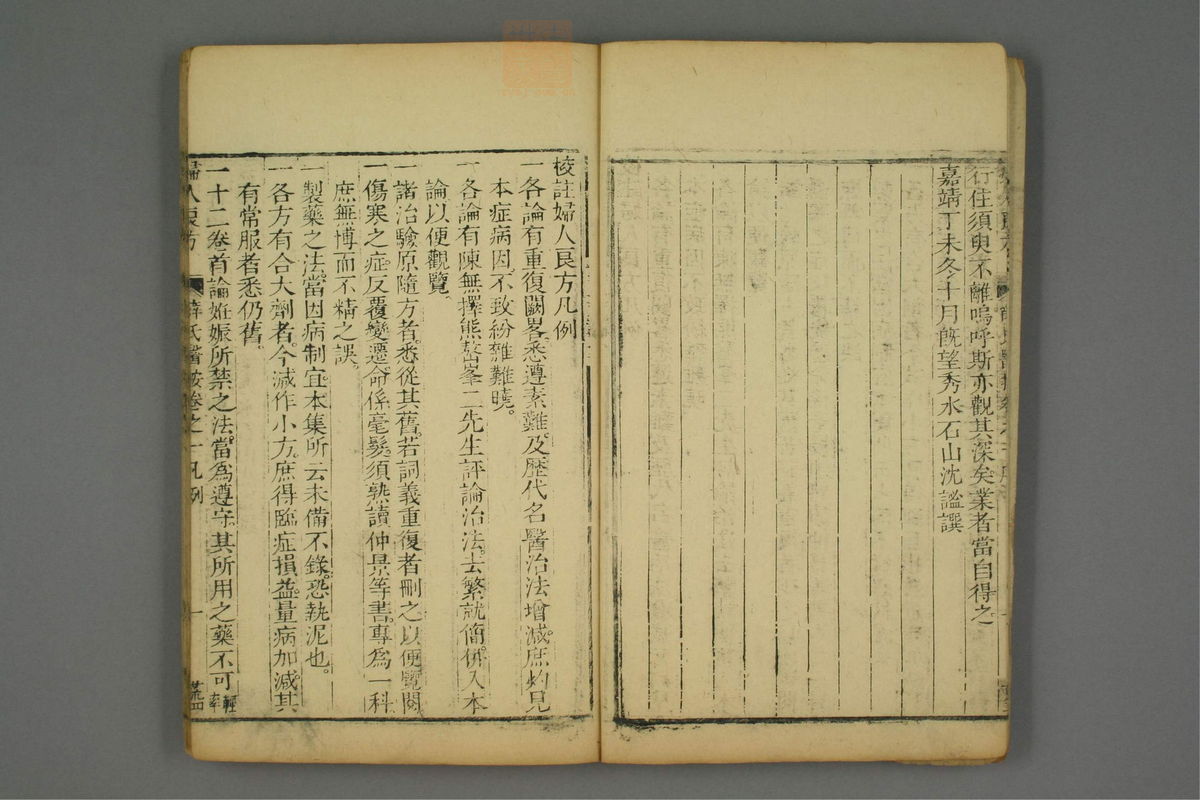 行住須臾不離嗚呼斯亦觀其深矣業者當自得之
嘉靖丁未冬十月既望秀水石山沈謐譔
校註婦人良方凡例
一各論有重復闕畧悉遵素難及歷代名醫治法增減庶灼見
本症病因不致紛雜難曉。
一各論有陳無擇熊鰲峯二先生評論治法去繁就簡併入本
論以便觀覽
一諸治驗原隨方者悉從其舊若詞義重復者刪之以便覽閱
一傷寒之症反覆變遷命係毫髮須熟讀仲景等書專為一科
庶無博而不精之誤。
一製藥之法當因病制宜本集所云未備不錄恐執泥也。
一各方有合大劑者今減作小方庶得臨症損益量病加減其
有常服者悉仍舊。
一十二卷首論妊娠所禁之法當為遵守其所用之藥不可輕率
婦人良方 薛氏醫按卷之一凡例 一